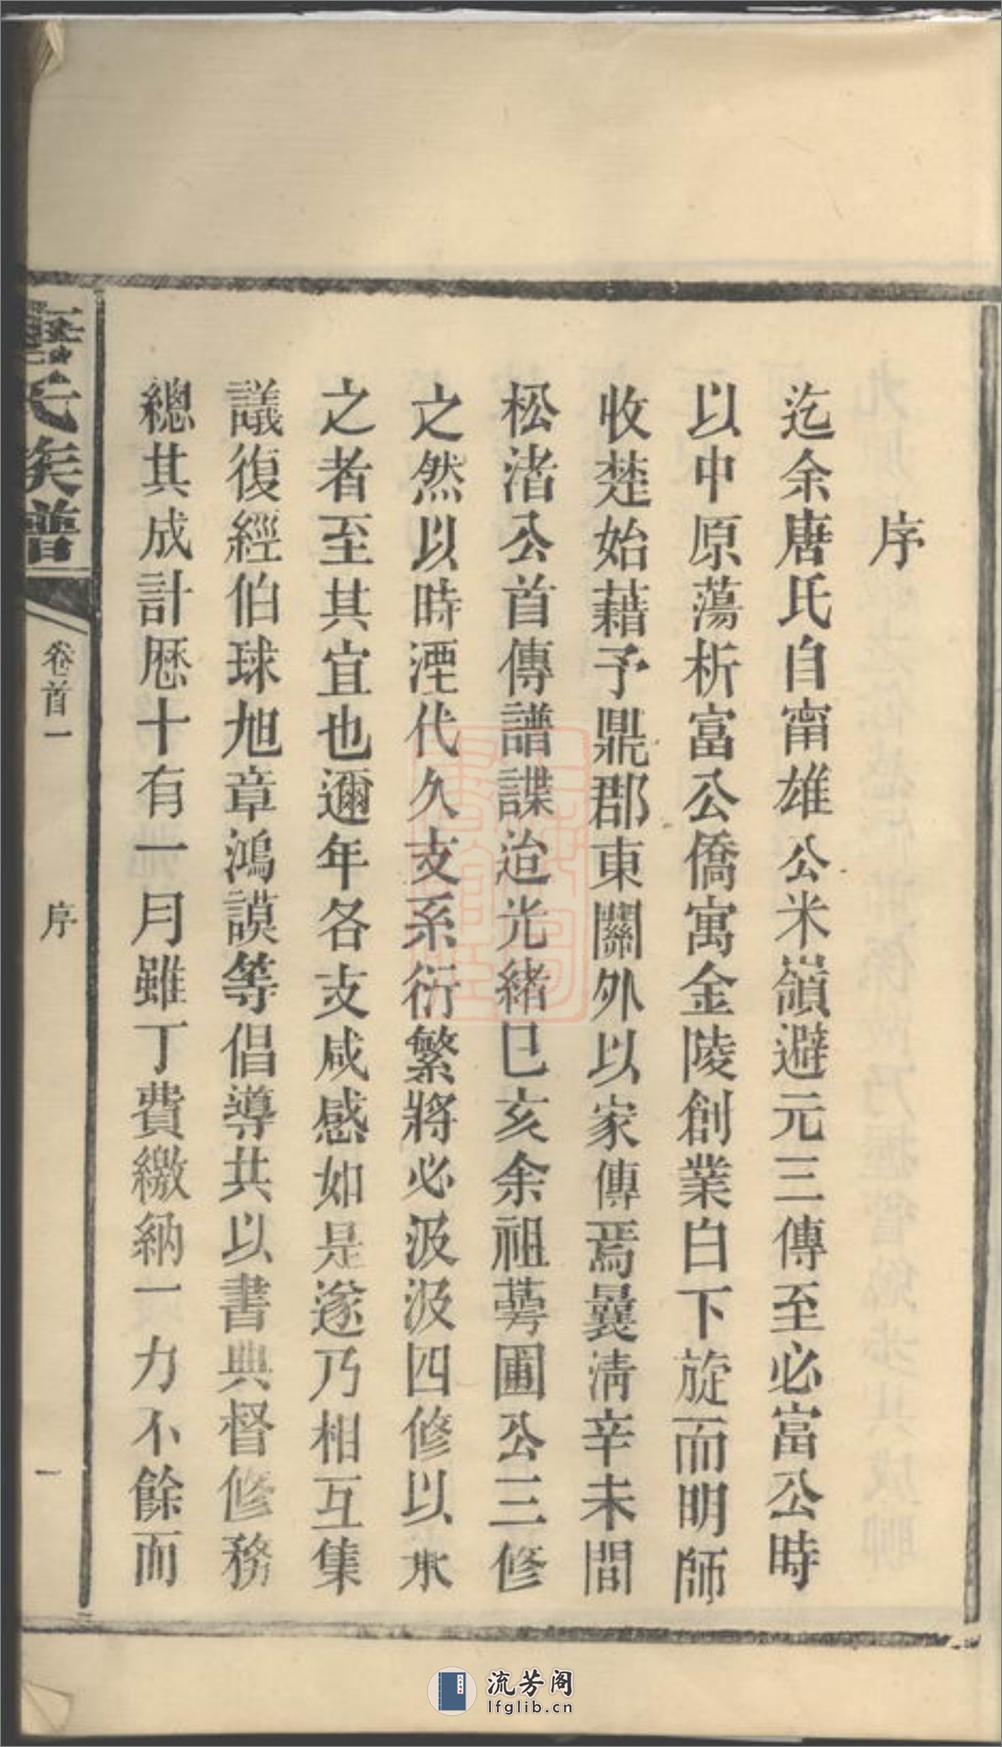 序
迄余唐氏自甯雄公米嶺避元三傳至必富公時
以中原蕩析富公僑寓金陵創業白下旋而明師
收楚始藉予鼎郡東關外以家傳焉曩清辛未間
松渚公首傳譜諜迨光緒巳亥余祖蕚圃公三修
之然以時湮代久支系衍繁將必汲汲四修以永
之者至其宜也邇年各支咸感如是遂乃相互集
議復經伯球旭章鴻謨等倡導共以書典督修務
總其成計歷十有一月雖丁費繳納一力不餘而
唐氏族譜
卷首一
序
一
流芳阁
lfglib.cn